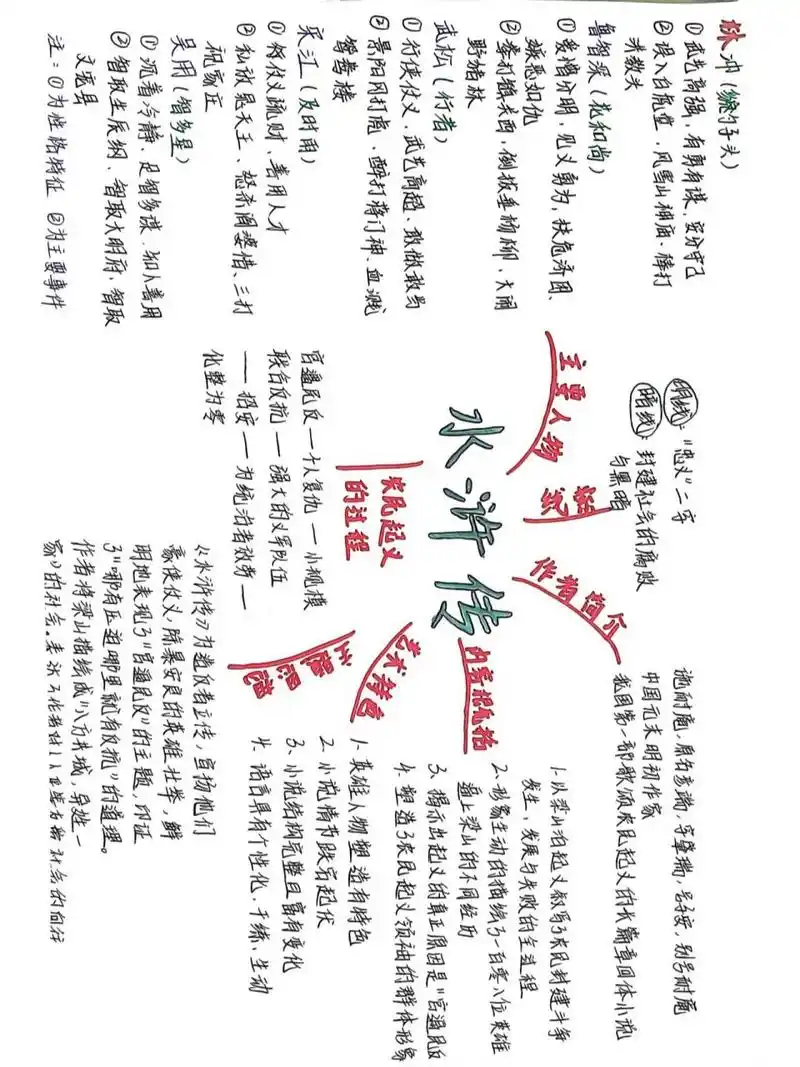 水浒传
主要人物
林冲（豹子头）
①武艺高强，有勇有谋，安分守己
②误入白虎堂、风雪山神庙、棒打
洪教头
鲁智深（花和尚）
①爱憎分明，见义勇为，扶危济困、
嫉恶如仇
②拳打镇关西，倒拔垂杨柳，大闹
野猪林
武松（行者）
①行侠仗义，武艺高超、敢做敢当
②景阳冈打虎，醉打蒋门神、血溅
鸳鸯楼
宋江（及时雨）
①仗义疏财、善用人才
②私放晁天王、怒杀阎婆惜、三打
祝家庄
吴用（智多星）
①沉着冷静、足智多谋、知人善用
②智取生辰纲，智取大明府，智取
文安县
注：①为性格特征 ②为主要事件
线
明线："忠义"二字
暗线：封建社会的腐败
与黑暗
作者简介
施耐庵，原名彦端，字肇瑞，号子安，别号耐庵
中国元末明初作家
我国第一部歌颂农民起义的长篇章回体小说
内容概括
1.从梁山泊起义叙写了农民封建斗争
发生、发展与失败的全过程
2、形象生动的描绘了一百零八位英雄
逼上梁山的不同经历
3、揭示出起义的真正原因是"官逼民反
4.塑造了农民起义领袖的群体形象
艺术特色
1.英雄人物塑造有特色
2.小说情节跌宕起伏
3.小说结构完整且富有变化
4.语言具有个性化，干练、生动
主
《水浒传》为造反者立传，宣扬他们
豪侠仗义、除暴安良的英雄壮举，鲜
明地表现了"官逼民反"的主题，印证
了"哪有压迫哪里就有反抗"的道理。
作者将梁山描绘成"八方共域，异姓一
家"的社会。
农民起义
的过程
官逼民反—个人复仇—小规模
联合反抗—强大的义军队伍
——招安——为统治者效劳——
化整为零